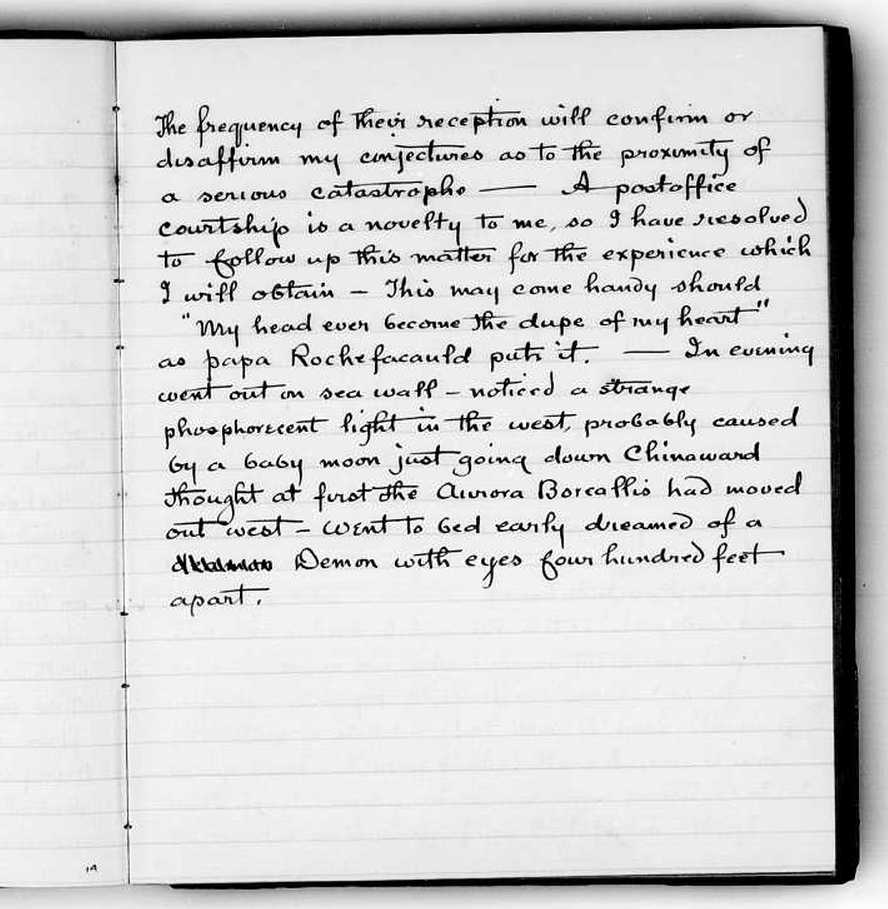 The frequency of their reception will confirm or
disaffirm my conjectures as to the proximity of
a serious catastrophe — A postoffice
courtship is a novelty to me, so I have resolved
to follow up this matter for the experience which
I will obtain – This may come handy should
"My head ever become the dupe of my heart"
as papa Rochefacauld puts it. — In evening
went out on sea wall – noticed a strange
phosphorecent light in the west, probably caused
by a baby moon just going down Chinaward
thought at first the Aurora Boreallis had moved
out west – went to bed early dreamed of a
Demon with eyes four hundred feet
apart.